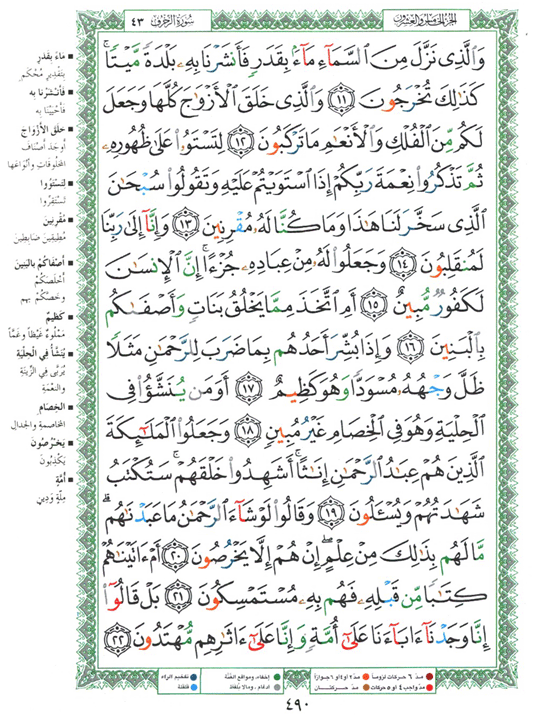 الجزء الخامس والعشرون
سورة الزخرف ٤٣
وَالَّذِى نَزَّلَ مِنَ السَّمَآءِ مَآءًۢ بِقَدَرٍ فَأَنشَرْنَا بِهِۦ بَلْدَةً مَّيْتًا ۚ
كَذَٰلِكَ تُخْرَجُونَ ١١ وَالَّذِى خَلَقَ الْأَزْوَٰجَ كُلَّهَا وَجَعَلَ
لَكُم مِّنَ الْفُلْكِ وَالْأَنْعَٰمِ مَا تَرْكَبُونَ ١٢ لِتَسْتَوُۥا عَلَىٰ ظُهُورِهِۦ
ثُمَّ تَذْكُرُوا نِعْمَةَ رَبِّكُمْ إِذَا اسْتَوَيْتُمْ عَلَيْهِ وَتَقُولُوا سُبْحَٰنَ
الَّذِى سَخَّرَ لَنَا هَٰذَا وَمَا كُنَّا لَهُۥ مُقْرِنِينَ ١٣ وَإِنَّآ إِلَىٰ رَبِّنَا
لَمُنقَلِبُونَ ١٤ وَجَعَلُوا لَهُۥ مِنْ عِبَادِهِۦ جُزْءًا ۚ إِنَّ الْإِنسَٰنَ
لَكَفُورٌ مُّبِينٌ ١٥ أَمِ اتَّخَذَ مِمَّا يَخْلُقُ بَنَاتٍ وَأَصْفَىٰكُم
بِالْبَنِينَ ١٦ وَإِذَا بُشِّرَ أَحَدُهُم بِمَا ضَرَبَ لِلرَّحْمَٰنِ مَثَلًا
ظَلَّ وَجْهُهُۥ مُسْوَدًّا وَهُوَ كَظِيمٌ ١٧ أَوَمَن يُنَشَّؤُا فِى
الْحِلْيَةِ وَهُوَ فِى الْخِصَامِ غَيْرُ مُبِينٍ ١٨ وَجَعَلُوا الْمَلَٰٓئِكَةَ
الَّذِينَ هُمْ عِبَٰدُ الرَّحْمَٰنِ إِنَٰثًا ۚ أَشَهِدُوا خَلْقَهُمْ ۚ سَتُكْتَبُ
شَهَٰدَتُهُمْ وَيُسْـَٔلُونَ ١٩ وَقَالُوا لَوْ شَآءَ الرَّحْمَٰنُ مَا عَبَدْنَٰهُم ۗ
مَّا لَهُم بِذَٰلِكَ مِنْ عِلْمٍ ۖ إِنْ هُمْ إِلَّا يَخْرُصُونَ ٢٠ أَمْ ءَاتَيْنَٰهُمْ
كِتَٰبًا مِّن قَبْلِهِۦ فَهُم بِهِۦ مُسْتَمْسِكُونَ ٢١ بَلْ قَالُوٓا
إِنَّا وَجَدْنَآ ءَابَآءَنَا عَلَىٰٓ أُمَّةٍ وَإِنَّا عَلَىٰٓ ءَاثَٰرِهِم مُّهْتَدُونَ ٢٢
■ مَاءً بِقَدَرٍ
بتقديرٍ مُحْكَمٍ
■ فَأنْشَرْنا به
فأحْيَيْنا به
■ خلَق الأزْوَاجَ
أوجَدَ أصنافَ
المخلوقاتِ وأنواعَها
■ لِتَسْتَوُوا
لتستَقِرُّوا
■ مُقْرِنِينَ
مُطِيقين ضابطين
■ أصْفاكُمْ بالبَنِينَ
أخلَصَكُمْ
وخَصَّكُمْ بهم
■ كَظِيمٌ
مَمْلُوءٌ غَيْظاً وغمّاً
■ يُنَشَّأ في الحِلْيَةِ
يُرَبَّى في الزِّينَةِ
والنَّعْمَةِ
■ الخِصَام
المخاصمةِ والجدالِ
■ يَخْرُصُونَ
يَكْذِبُونَ
■ أمَّةٍ
مِلَّةٍ ودِينٍ
مدّ ٦ حركات لزوماً
مدّ ٢ أو ٤ أو ٦ جوازاً
مدّ واجب ٤ أو ٥ حركات
مدّ حركتان
إخفاء، ومواقع الغُنَّة
إدغام، وما لا يُلفَظ
تفخيم الراء
قلقلة
٤٩٠